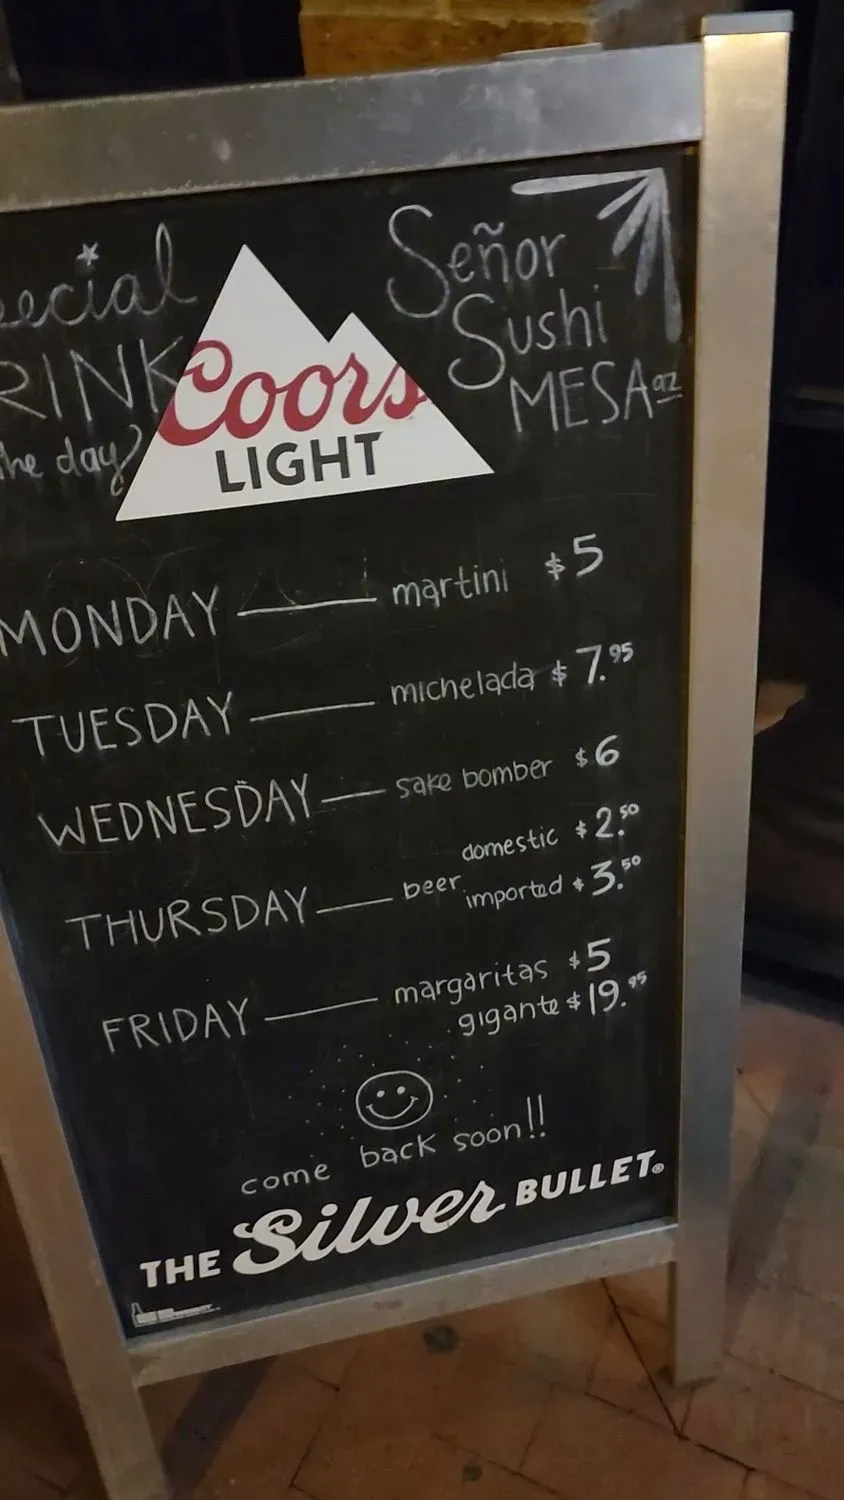 ecial
RINK
he day
Coors
LIGHT
Señor
Sushi
MESA az
MONDAY martini $5
TUESDAY michelada $7.95
WEDNESDAY sake bomber $6
THURSDAY beer domestic $2.50
imported $3.50
FRIDAY margaritas $5
gigante $19.95
come back soon!!
THE Silver BULLET®